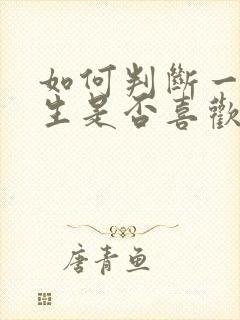 如何判斷一
生是否喜歡
唐青鱼